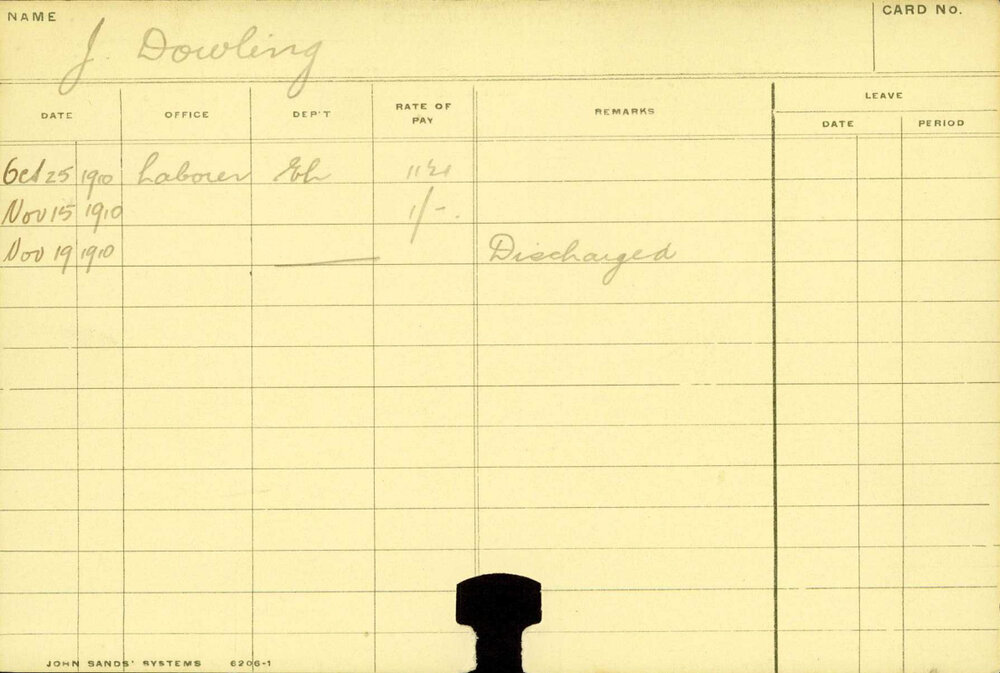 NAME
CARD No.
J. Dowling
DATE OFFICE DEP'T RATE OF PAY REMARKS LEAVE
DATE PERIOD
Oct 25 1910 Laborer Eh
Nov 15 1910 1/-.
Nov 19 1910 Discharged
JOHN SANDS' SYSTEMS 6206-1